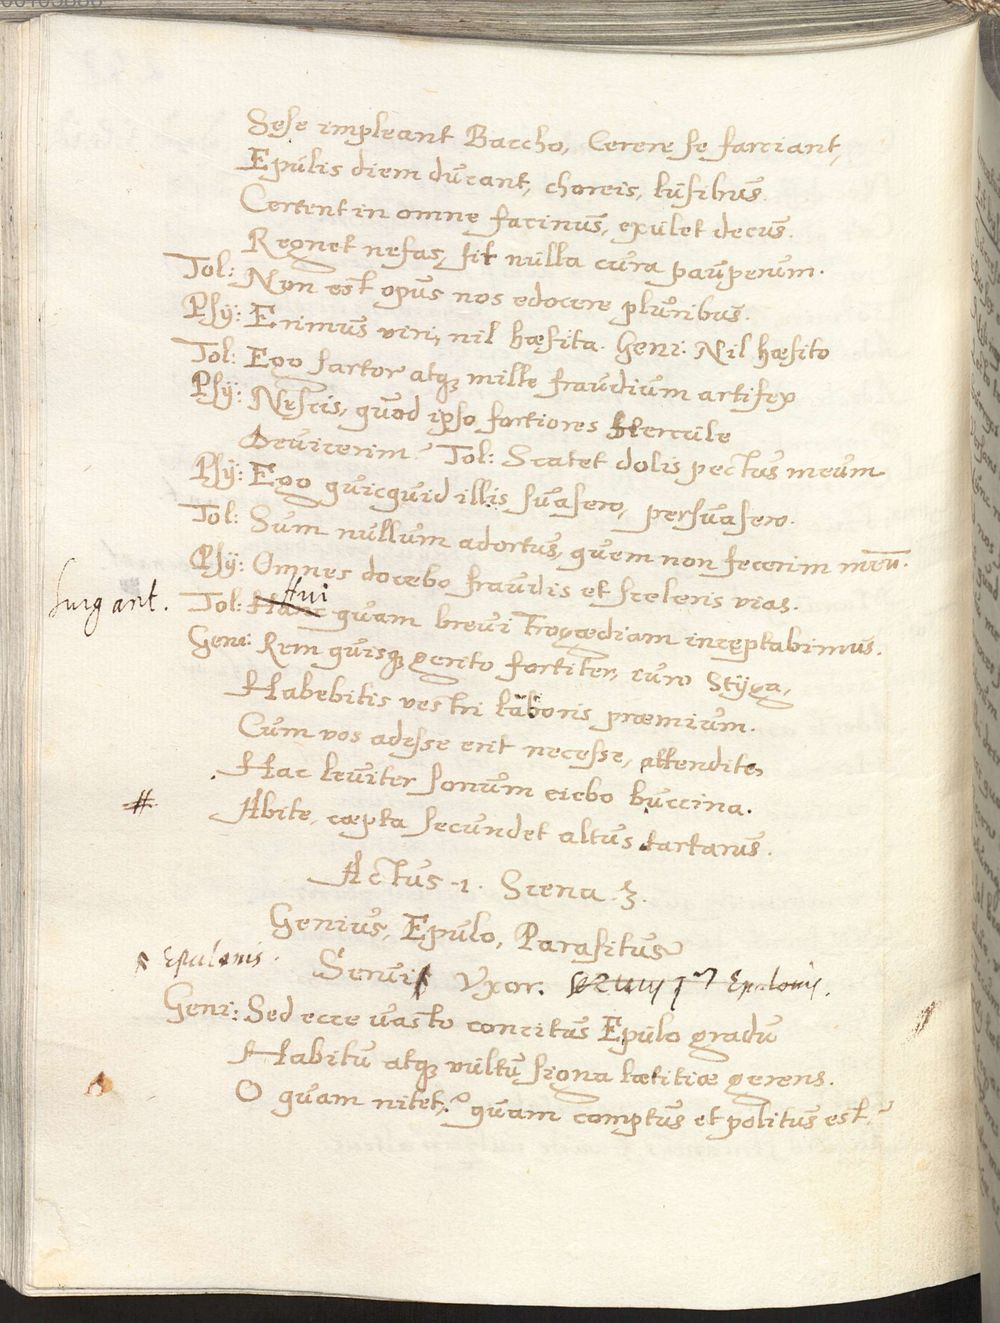 Sese impleant Baccho, Cerere se farciant,
Epulis diem ducant, choreis, lusibus.
Certent in omne facinus, exulet decus.
Regnet nefas, sit nulla cura pauperum.
Tol: Non est opus nos edocere pluribus.
Psy: Erimus viri, nil hæsita. Geni: Nil hæsito
Tol: Ego sartor atq; mille fraudium artifex
Psy: Nescis, quod ipso fortiores Hercule
Devicerim? Tol: Scatet dolis pectus meum
Psy: Ego quicquid illis suasero, persuasero.
Tol: Sum nullum adortus, quem non fecerim meū.
Psy: Omnes docebo fraudis et sceleris vias.
Surgant. Tol: Hanc Hui quam brevi Tragœdiam inceptabimus.
Geni: Rem quisq; gerito fortiter, iuro Styga,
Habebitis vestri laboris præmium.
Cum vos adesse erit necesse, attendite,
Hac leviter sonum ciebo buccina.
# Abite, cæpta secundet altus tartarus.
Actus 1. Scena 3.
Genius, Epulo, Parasitus
Epulonis. Servi Vxor. Epulonis.
Geni: Sed ecce vasto concitus Epulo gradu
Habitu atq; vultu signa lætitiæ gerens.
O quam nitet? quam comptus et politus est?